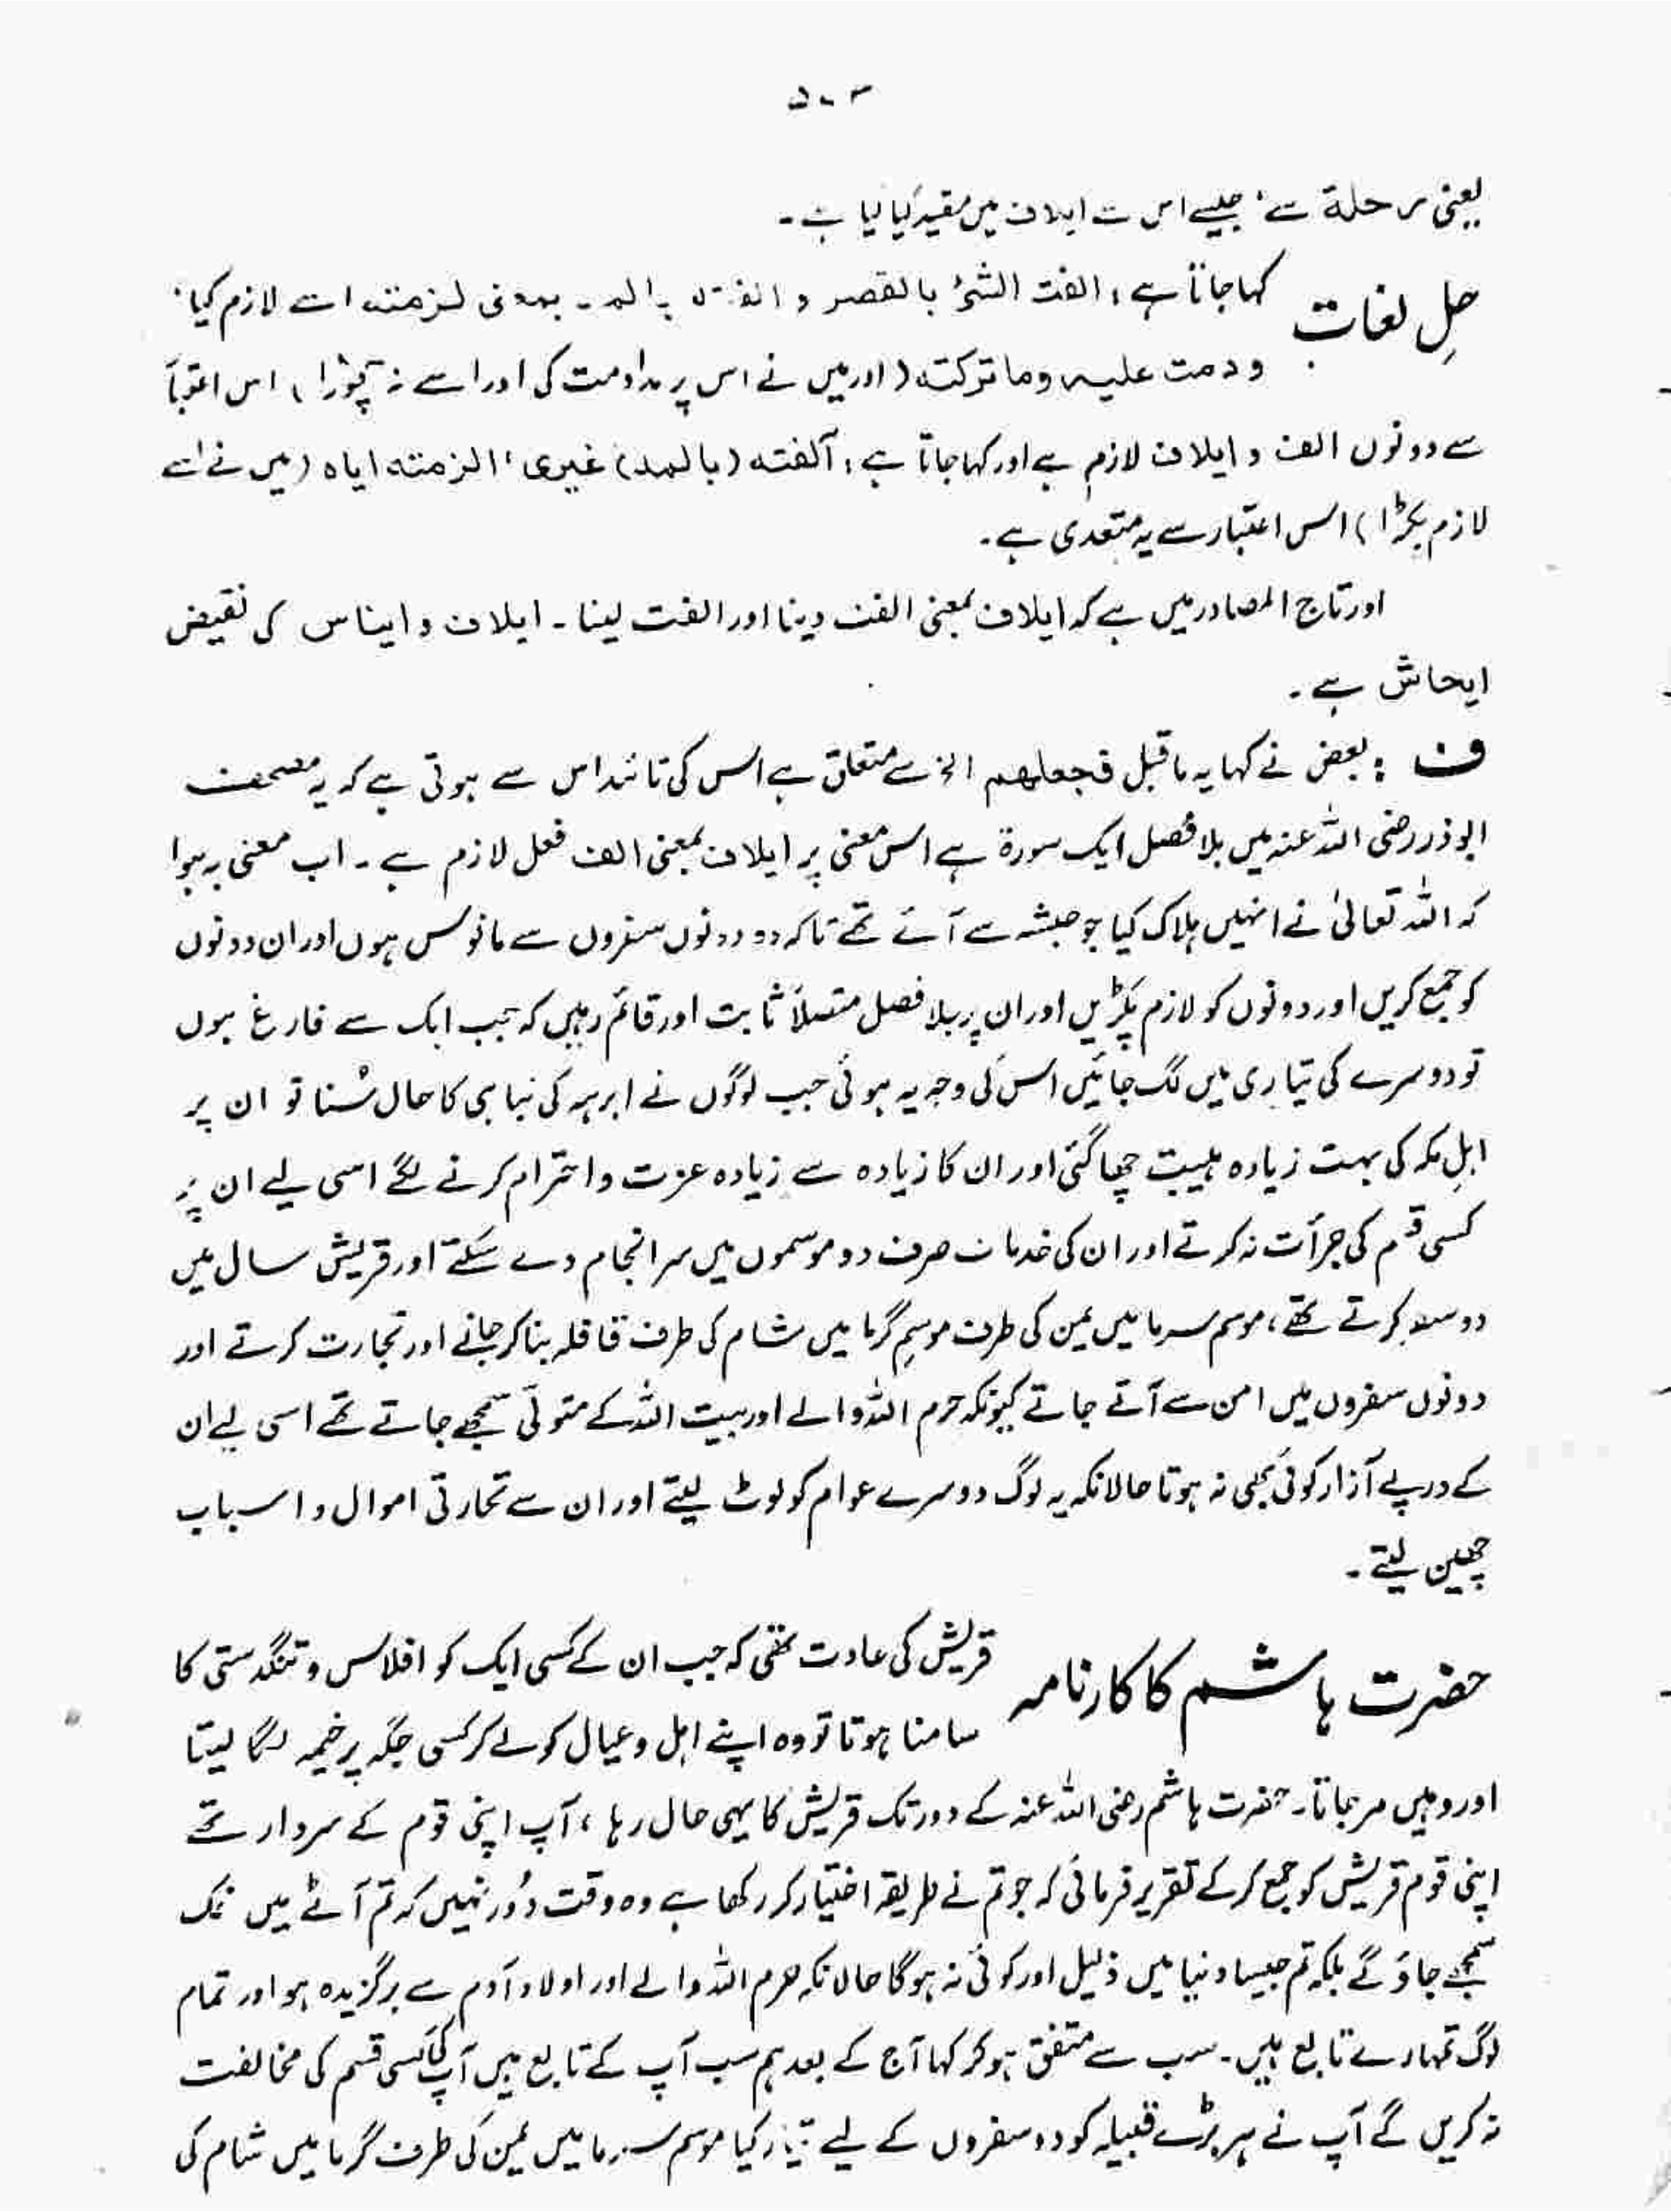 ۵۰۳
یعنی رحلۃ سے، جیسے اس سے ایلاف میں مقید کیا گیا ہے۔
حلِ لغات
کہا جاتا ہے: الفت الشئ بالقصر و الفتہ بالمد۔ بمعنی لزمتہ اسے لازم کیا،
و دمت علیہ وما ترکتہ (اور میں نے اس پر مداومت کی اور اسے نہ چھوڑا) اس اعتبار
سے دونوں الف و ایلاف لازم ہے اور کہا جاتا ہے: آلفتہ (بالمد) غیری، الزمتہ ایاہ (میں نے اسے
لازم پکڑا) اس اعتبار سے یہ متعدی ہے۔
اور تاج المصادر میں ہے کہ ایلاف بمعنی الفت دینا اور الفت لینا۔ ایلاف و ایناس کی نقیض
ایحاش ہے۔
ف : بعض نے کہا یہ ماقبل فجعلھم الخ سے متعلق ہے اس کی تائید اس سے ہوتی ہے کہ یہ مصحف
ابوذر رضی اللہ عنہ میں بلا فصل ایک سورۃ ہے اس معنی پر ایلاف بمعنی الف فعل لازم ہے۔ اب معنی یہ ہوا
کہ اللہ تعالیٰ نے انہیں ہلاک کیا جو حبشہ سے آئے تھے تاکہ وہ دونوں سفروں سے مانوس ہوں اور ان دونوں
کو جمع کریں اور دونوں کو لازم پکڑیں اور ان پر بلا فصل متصلاً ثابت اور قائم رہیں کہ جب ایک سے فارغ ہوں
تو دوسرے کی تیاری میں لگ جائیں اس کی وجہ یہ ہوئی جب لوگوں نے ابرہہ کی تباہی کا حال سُنا تو ان پر
اہلِ مکہ کی بہت زیادہ ہیبت چھا گئی اور ان کا زیادہ سے زیادہ عزت و احترام کرنے لگے اسی لیے ان پر
کسی قسم کی جرأت نہ کرتے اور ان کی خدمات صرف دو موسموں میں سرانجام دے سکتے اور قریش سال میں
دو سفر کرتے تھے، موسم سرما میں یمن کی طرف موسمِ گرما میں شام کی طرف قافلہ بنا کر جاتے اور تجارت کرتے اور
دونوں سفروں میں امن سے آتے جاتے کیونکہ حرم اللہ والے اور بیت اللہ کے متولّی سمجھے جاتے تھے اسی لیے ان
کے درپے آزار کوئی بھی نہ ہوتا حالانکہ یہ لوگ دوسرے عوام کو لوٹ لیتے اور ان سے تجارتی اموال و اسباب
چھین لیتے۔
حضرت ہاشم کا کارنامہ
قریش کی عادت تھی کہ جب ان کے کسی ایک کو افلاس و تنگدستی کا
سامنا ہوتا تو وہ اپنے اہل و عیال کو لے کر کسی جگہ پر خیمہ لگا لیتا
اور وہیں مر جاتا۔ حضرت ہاشم رضی اللہ عنہ کے دور تک قریش کا یہی حال رہا، آپ اپنی قوم کے سردار تھے
اپنی قوم قریش کو جمع کر کے تقریر فرمائی کہ جو تم نے طریقہ اختیار کر رکھا ہے وہ وقت دُور نہیں کہ تم آٹے میں نمک
سمجھے جاؤ گے بلکہ تم جیسا دنیا میں ذلیل اور کوئی نہ ہوگا حالانکہ حرم اللہ والے اور اولاد آدم سے برگزیدہ ہو اور تمام
لوگ تمہارے تابع ہیں۔ سب سے متفق ہو کر کہا آج کے بعد ہم سب آپ کے تابع ہیں آپ کی کسی قسم کی مخالفت
نہ کریں گے آپ نے ہر بڑے قبیلہ کو دو سفروں کے لیے تیار کیا موسم سرما میں یمن کی طرف گرما میں شام کی